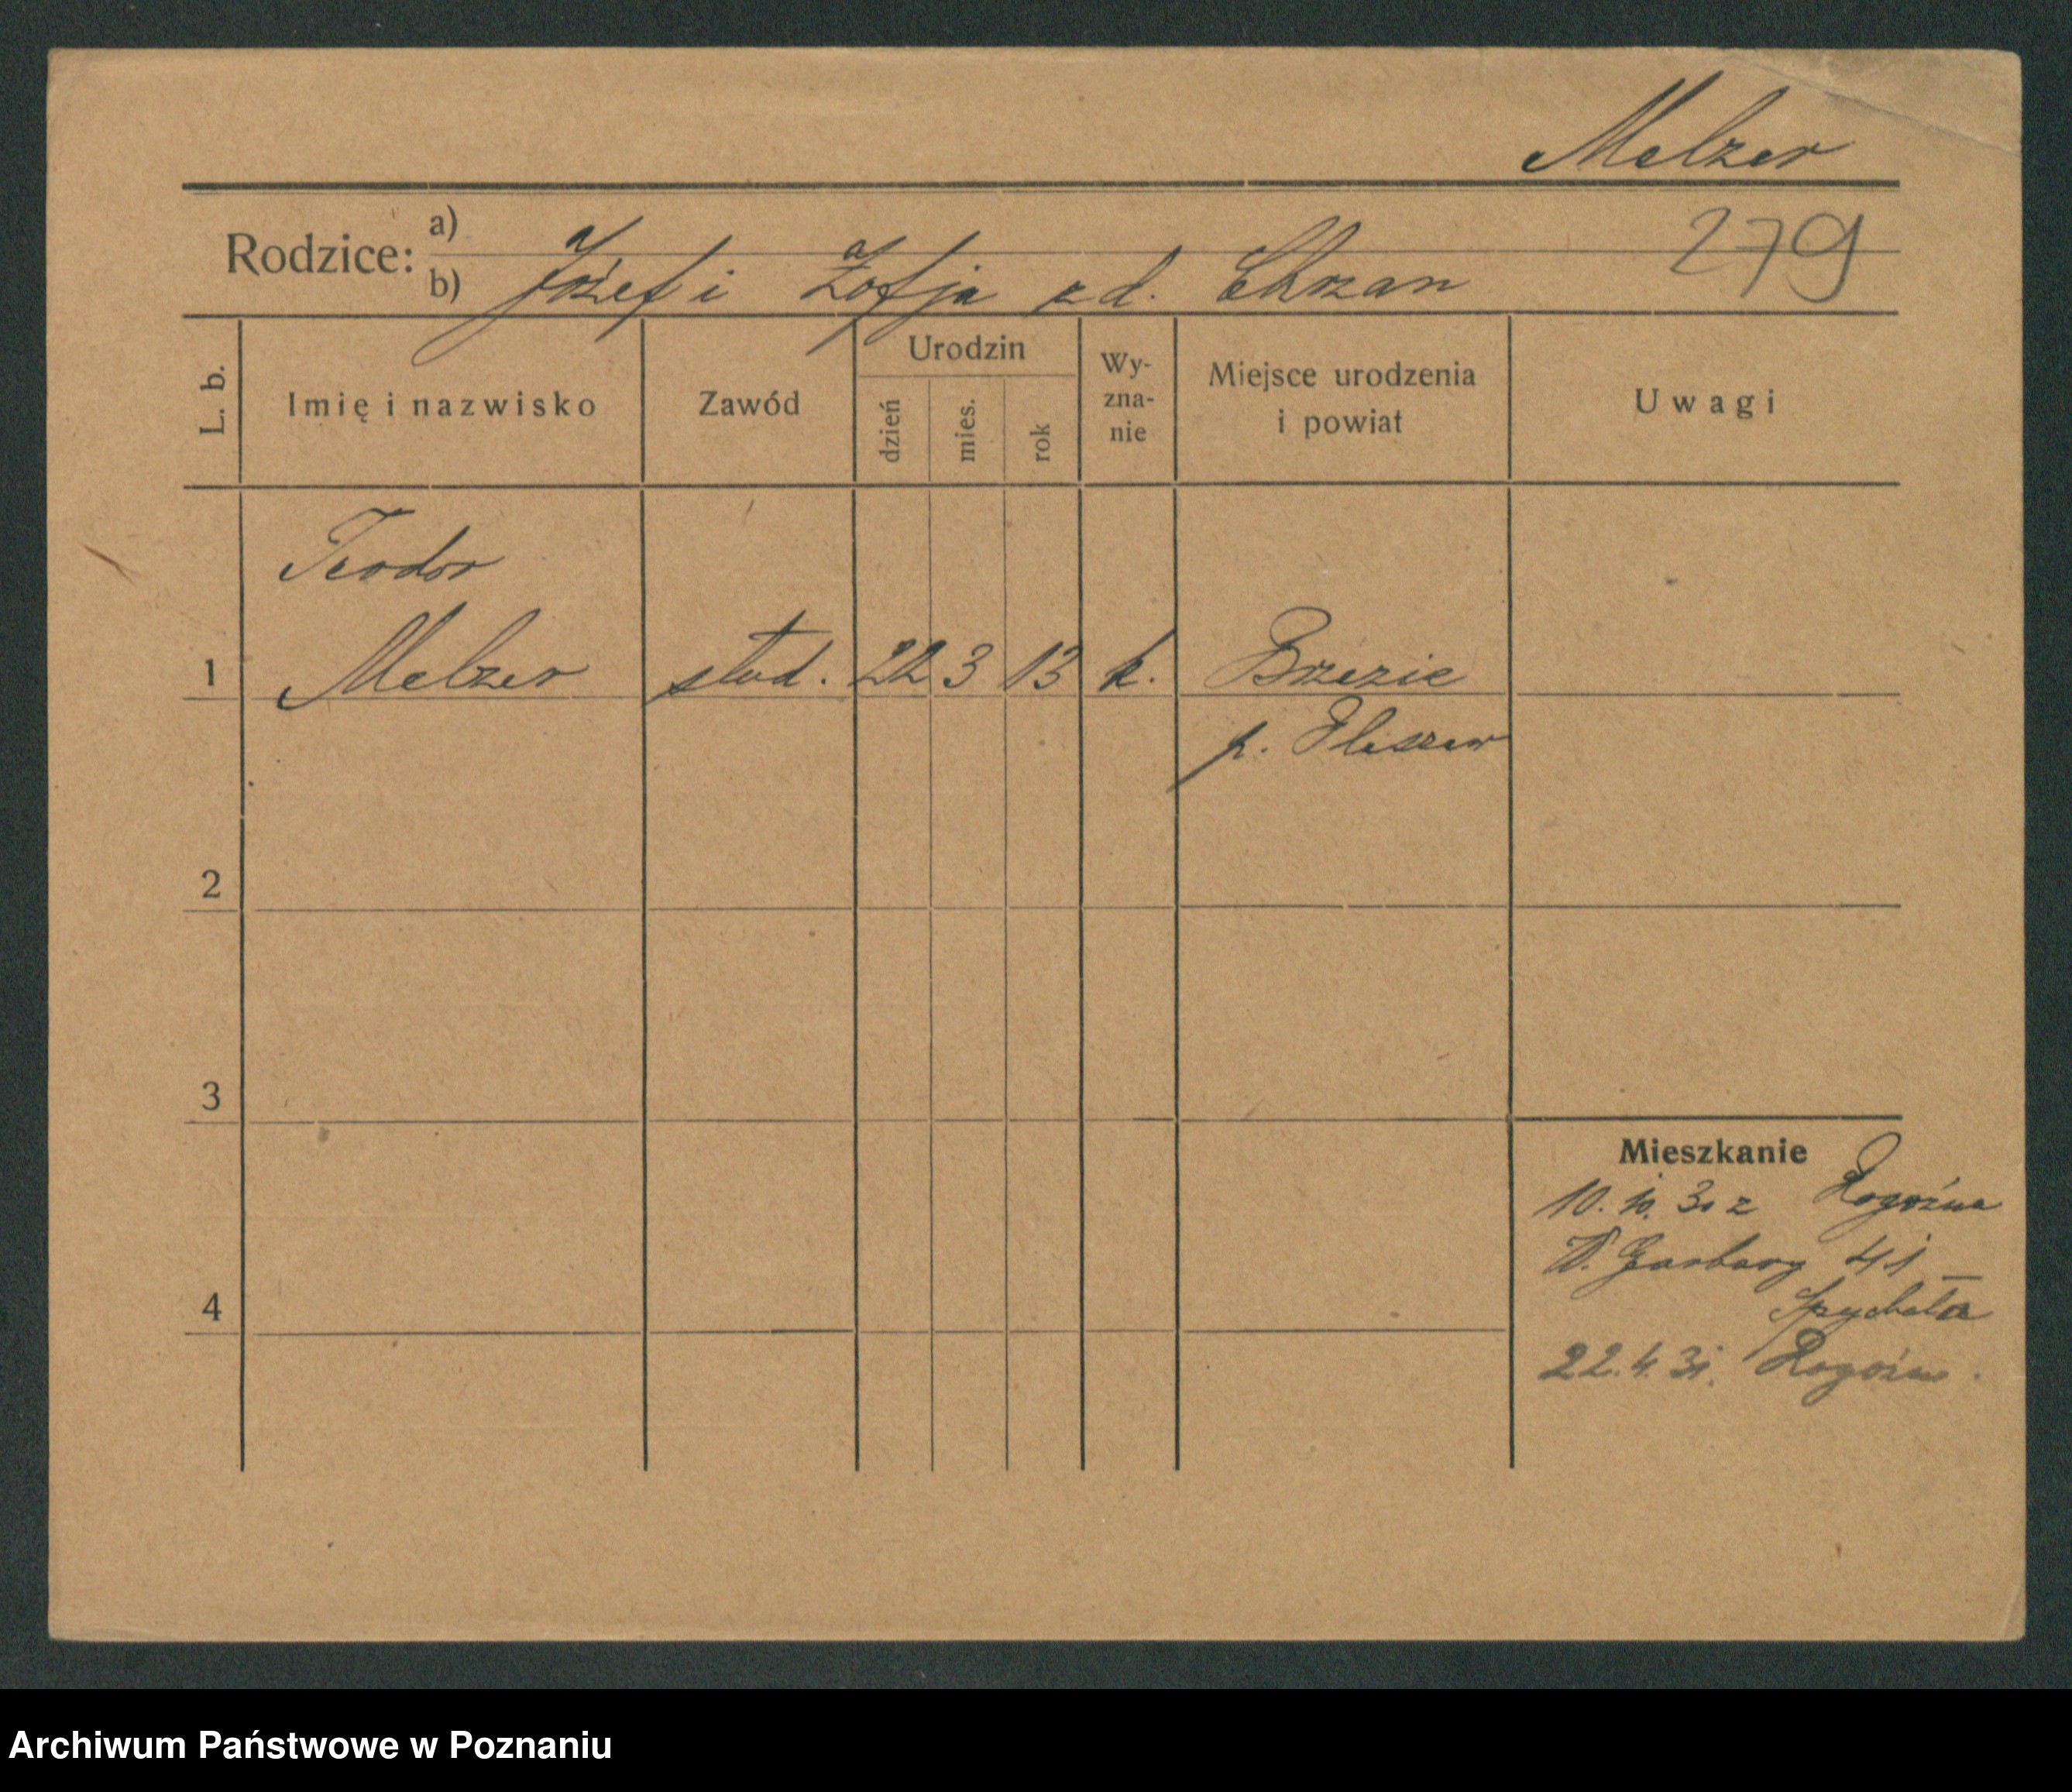 Melzer
Rodzice: a)
b) Józef i Zofja z d. Chrzan
279
L. b.
Imię i nazwisko
Zawód
Urodzin
dzień
mies.
rok
Wy-
zna-
nie
Miejsce urodzenia
i powiat
Uwagi
Teodor
1 Melzer stud. 22 3 13 k. Brzezie
p. Pleszew
2
3
4
Mieszkanie
10. 10. 30 z Rogoźna
W. Garbary 41
Spychała
22. 4. 31. Rogoźno.
Archiwum Państwowe w Poznaniu